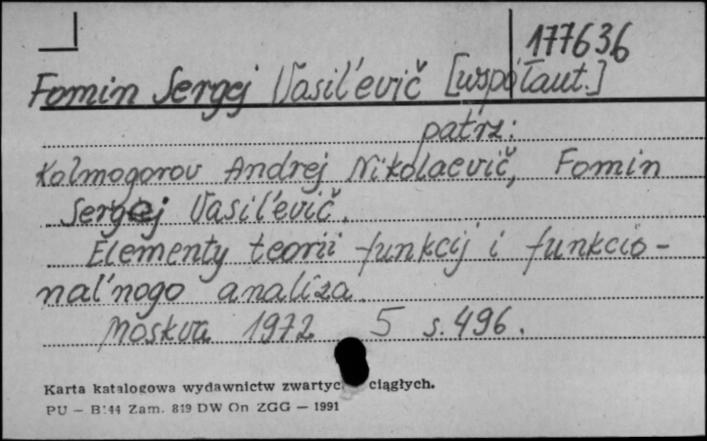 177636
Fomin Sergej Vasil'evič [współaut.]
patrz:
Kolmogorov Andrej Nikolaevič, Fomin
Sergej Vasil'evič.
Elementy teorii funkcij i funkcio-
nal'nogo analiza.
Moskva 1972 5 s. 496.
Karta katalogowa wydawnictw zwartyc ciągłych.
PU - B 144 Zam. 819 DW On ZGG - 1991